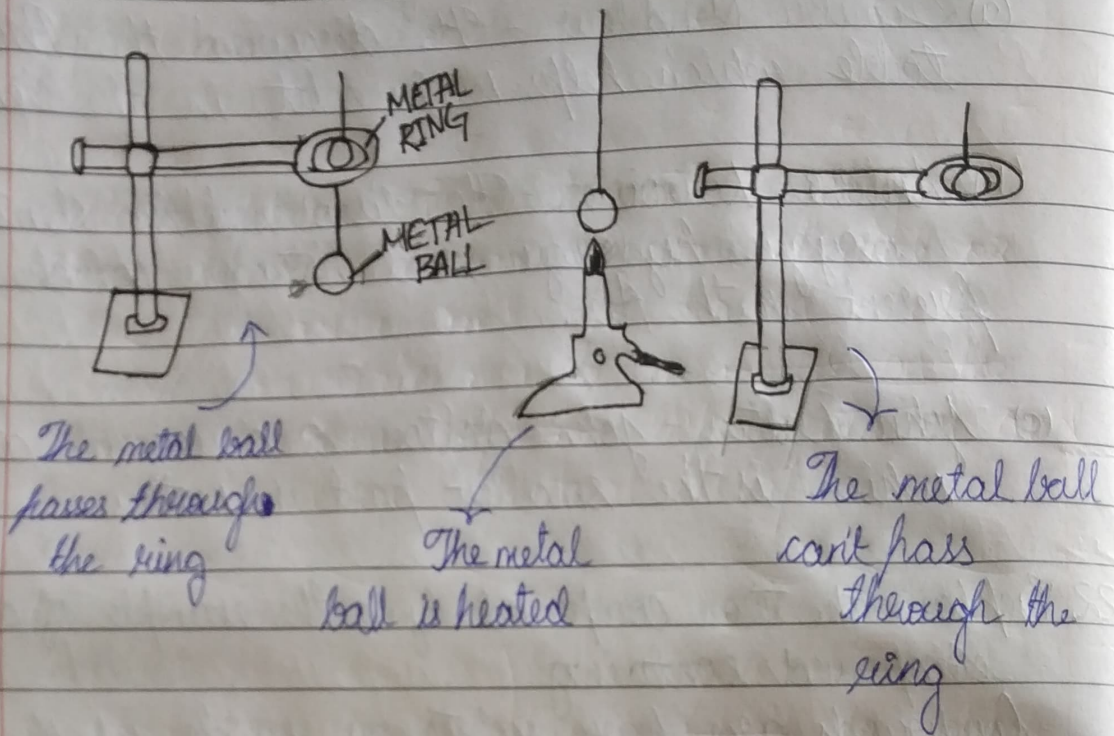 METAL
RING
METAL
BALL
The metal ball
passes through
the ring
The metal
ball is heated
The metal ball
can't pass
through the
ring